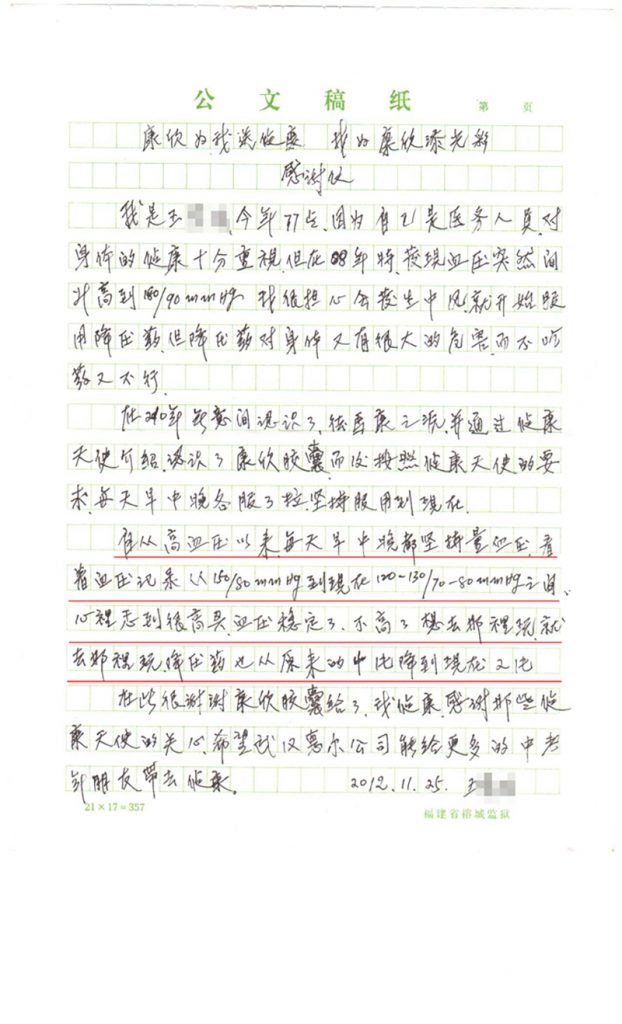 公文稿纸 第 页
康欣为我送健康 我为康欣添光彩
感谢仪
我是王 今年77点,因为自己是医务人员,对
身体的健康十分重视,但在08年特发现血压突然间
升高到180/90mmHg 我很担心会发生中风,就开始服
用降压药,但降压药对身体又有很大的危害,而不吃
药又不行.
在2010年 间认识了 康之 ,并通过健康
天使介绍,认识了康欣胶囊,而后按照健康天使的要
求,每天早中晚各服3粒,坚持服用到现在.
自从高血压以来,每天早中晚都坚持量血压,看
着血压记录从150/80mmHg到现在120-130/70-80mmHg之间、
心裡感到很高兴,血压稳定了,不高了想去那裡玩,就
去那裡玩,降压药也从原来的 降到现在
在此很谢谢康欣胶囊给了我健康,感谢那些健
康天使的关心,希望武汉惠尔公司能给更多的中老
年朋友带去健康。 2012.11.25. 王
21×17=357 福建省榕城监狱